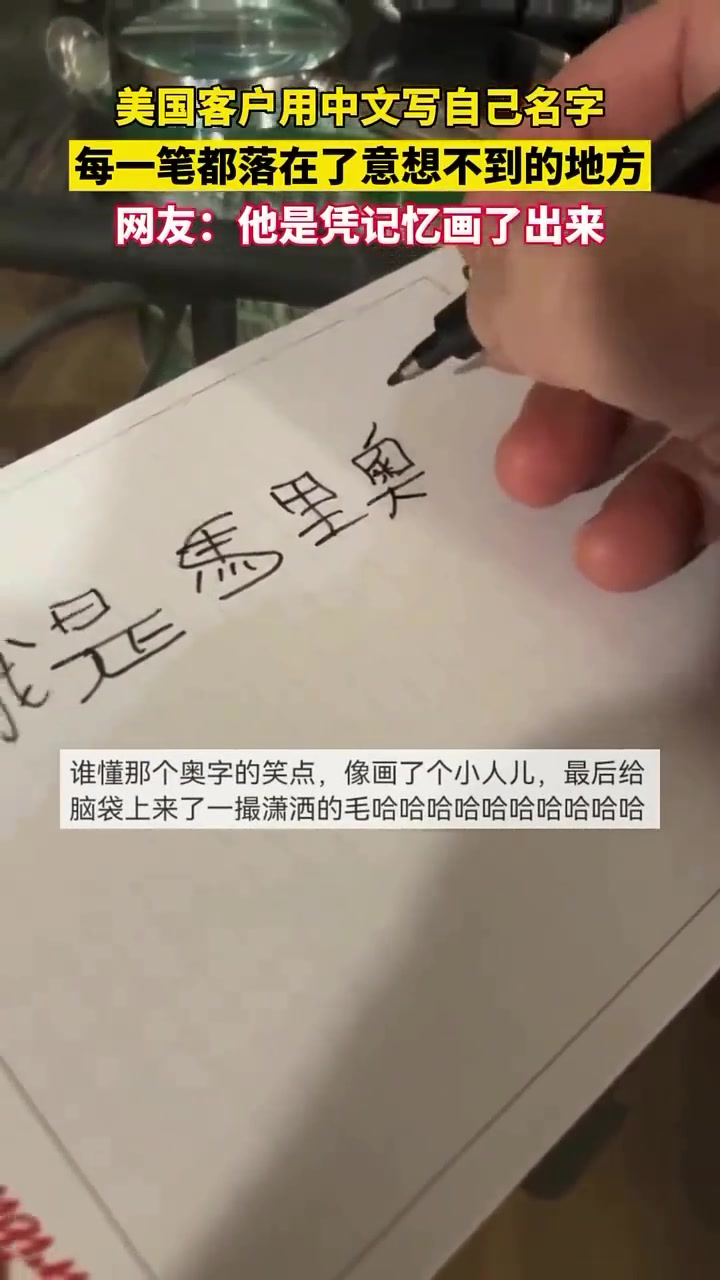 美国客户用中文写自己名字
每一笔都落在了意想不到的地方
网友：他是凭记忆画了出来
我是馬里奥
谁懂那个奥字的笑点，像画了个小人儿，最后给
脑袋上来了一撮潇洒的毛哈哈哈哈哈哈哈哈哈哈